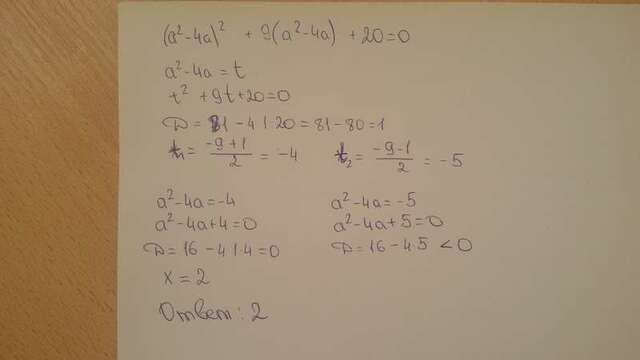 (a²-4a)² + 9(a²-4a) + 20=0
a²-4a=t
t² +9t+20=0
D = 81-4·1·20=81-80=1
t₁= (-9+1)/2 = -4    t₂= (-9-1)/2 = -5
a²-4a=-4    a²-4a=-5
a²-4a+4=0    a²-4a+5=0
D=16-4·1·4=0    D=16-4·5 <0
x=2
Ответ: 2